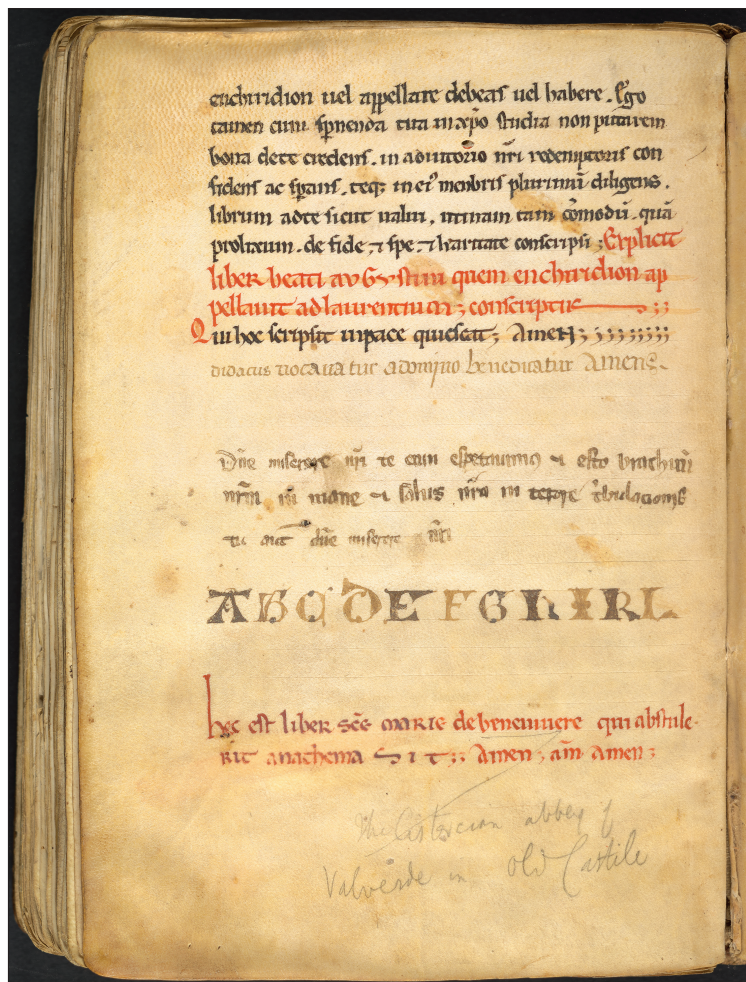 enchiridion uel appellare debeas uel habere. Ego
tamen cum spnenda tua in xpo studia non putarem
bona de te credens. in adiutorio nri redemptoris con
fidens ac sperans. teq; in ei' menbris plurimū diligens.
librum ad te sicut ualui, utinam tam cōmodū. quā
prolixum. de fide, ⁊ spe ⁊ karitate conscripsi; Explicit
liber beati avGvstini quem enchiridion ap
pellauit ad laurentium; conscriptus ;;
Qui hoc scripsit in pace quiescat; AmeN; ;;;;;;;
didacus uocauatur a domino benedicatur Amen
Dñe miserere nri te enim espectauimus ⁊ esto brachiū
nrm in mane ⁊ salus nra in tempore tribulacionis
tu aut dñe miserere nri
A B C D E F G H I K L
hec est liber scē marie de beneuiuere qui abstule
rit anathema S I T;; Amen; am̄ Amen;
The Cistercian abbey of
Valverde in Old Castile